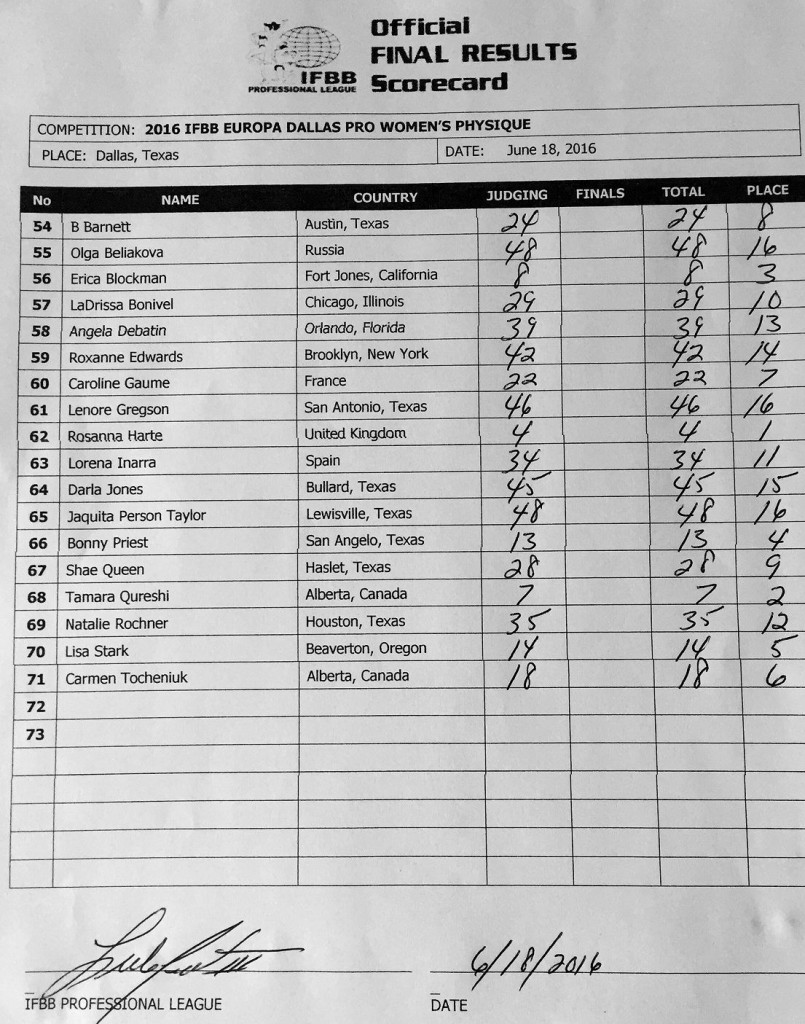 Official
FINAL RESULTS
Scorecard
IFBB
PROFESSIONAL LEAGUE
COMPETITION: 2016 IFBB EUROPA DALLAS PRO WOMEN'S PHYSIQUE
PLACE: Dallas, Texas DATE: June 18, 2016
No NAME COUNTRY JUDGING FINALS TOTAL PLACE
54 B Barnett Austin, Texas 24 24 8
55 Olga Beliakova Russia 48 48 16
56 Erica Blockman Fort Jones, California 8 8 3
57 LaDrissa Bonivel Chicago, Illinois 29 29 10
58 Angela Debatin Orlando, Florida 39 39 13
59 Roxanne Edwards Brooklyn, New York 42 42 14
60 Caroline Gaume France 22 22 7
61 Lenore Gregson San Antonio, Texas 46 46 16
62 Rosanna Harte United Kingdom 4 4 1
63 Lorena Inarra Spain 34 34 11
64 Darla Jones Bullard, Texas 45 45 15
65 Jaquita Person Taylor Lewisville, Texas 48 48 16
66 Bonny Priest San Angelo, Texas 13 13 4
67 Shae Queen Haslet, Texas 28 28 9
68 Tamara Qureshi Alberta, Canada 7 7 2
69 Natalie Rochner Houston, Texas 35 35 12
70 Lisa Stark Beaverton, Oregon 14 14 5
71 Carmen Tocheniuk Alberta, Canada 18 18 6
72
73
6/18/2016
IFBB PROFESSIONAL LEAGUE DATE